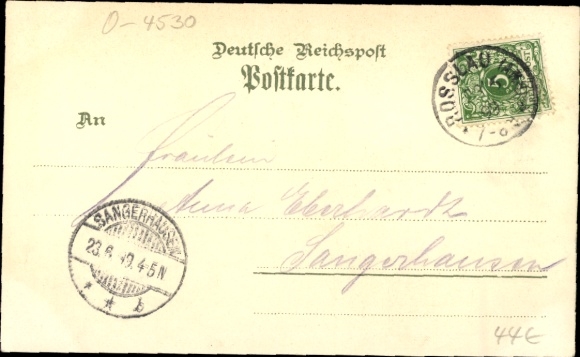 0-4530
Deutsche Reichspost
Postkarte.
5
ROSSLAU
7-8
An
Fräulein
Anna Eberhardt
Sangerhausen
SANGERHAUSEN
23.6. 4-5N
* * b
44€